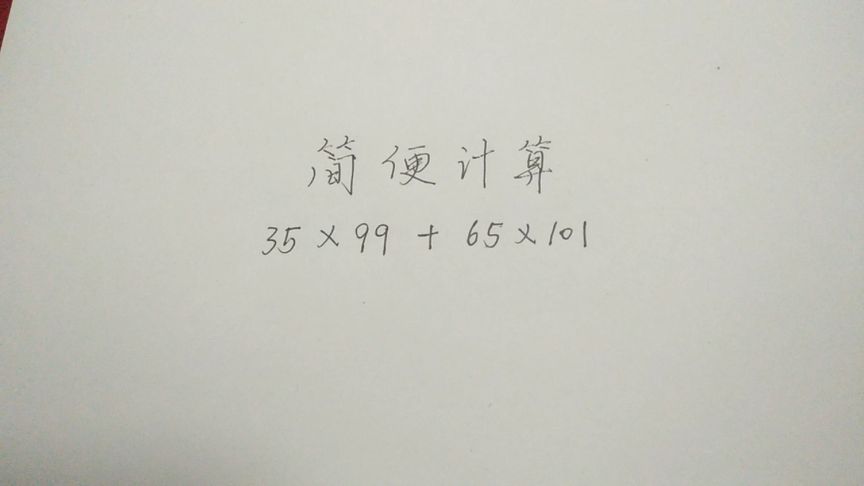 简便计算
35×99+65×101